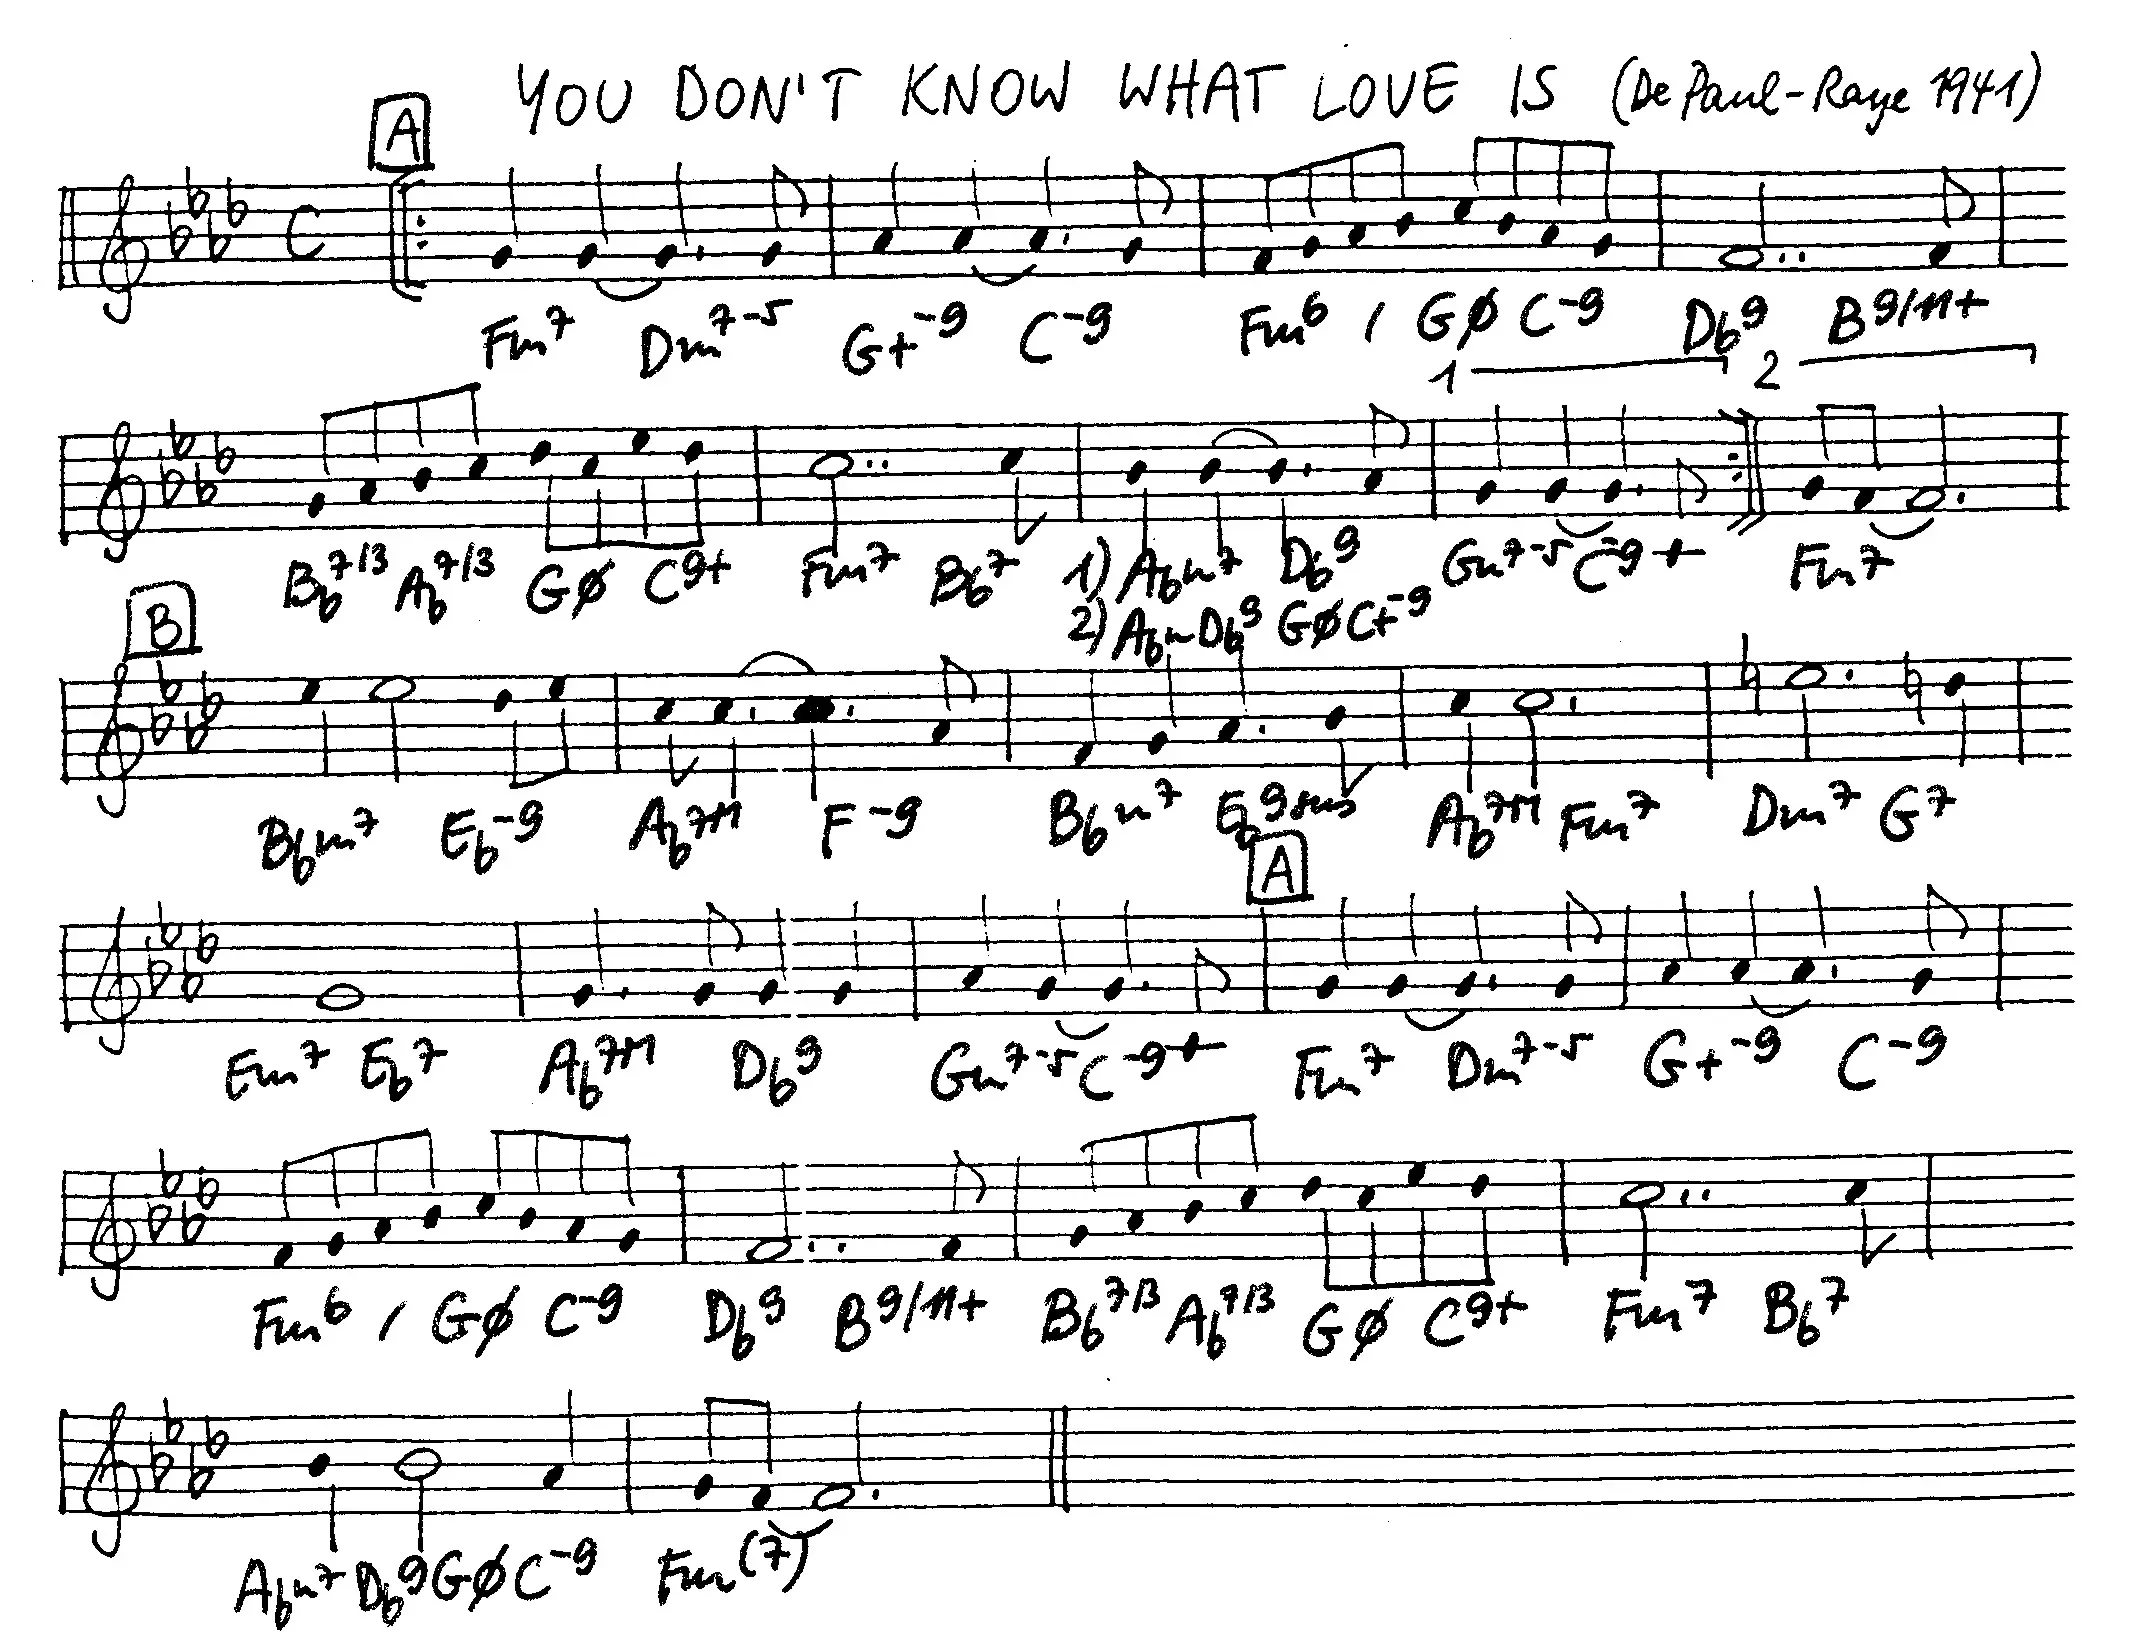 YOU DON'T KNOW WHAT LOVE IS (De Paul-Raye 1941)
A
C
Fm7 Dm7-5 G+-9 C-9 Fm6 / GØ C-9 Db9 B9/11+
1 2
Bb7/13 Ab7/13 GØ C9+ Fm7 Bb7 1) Abm7 Db9 Gm7-5 C-9+ Fm7
2) Abm Db9 GØ C+-9
B
Bbm7 Eb-9 Ab7+M F-9 Bbm7 Eb9sus Ab7+M Fm7 Dm7 G7
A
Em7 Eb7 Ab7+M Db9 Gm7-5 C-9+ Fm7 Dm7-5 G+-9 C-9
Fm6 / GØ C-9 Db9 B9/11+ Bb7/13 Ab7/13 GØ C9+ Fm7 Bb7
Abm7 Db9 GØ C-9 Fm(7)